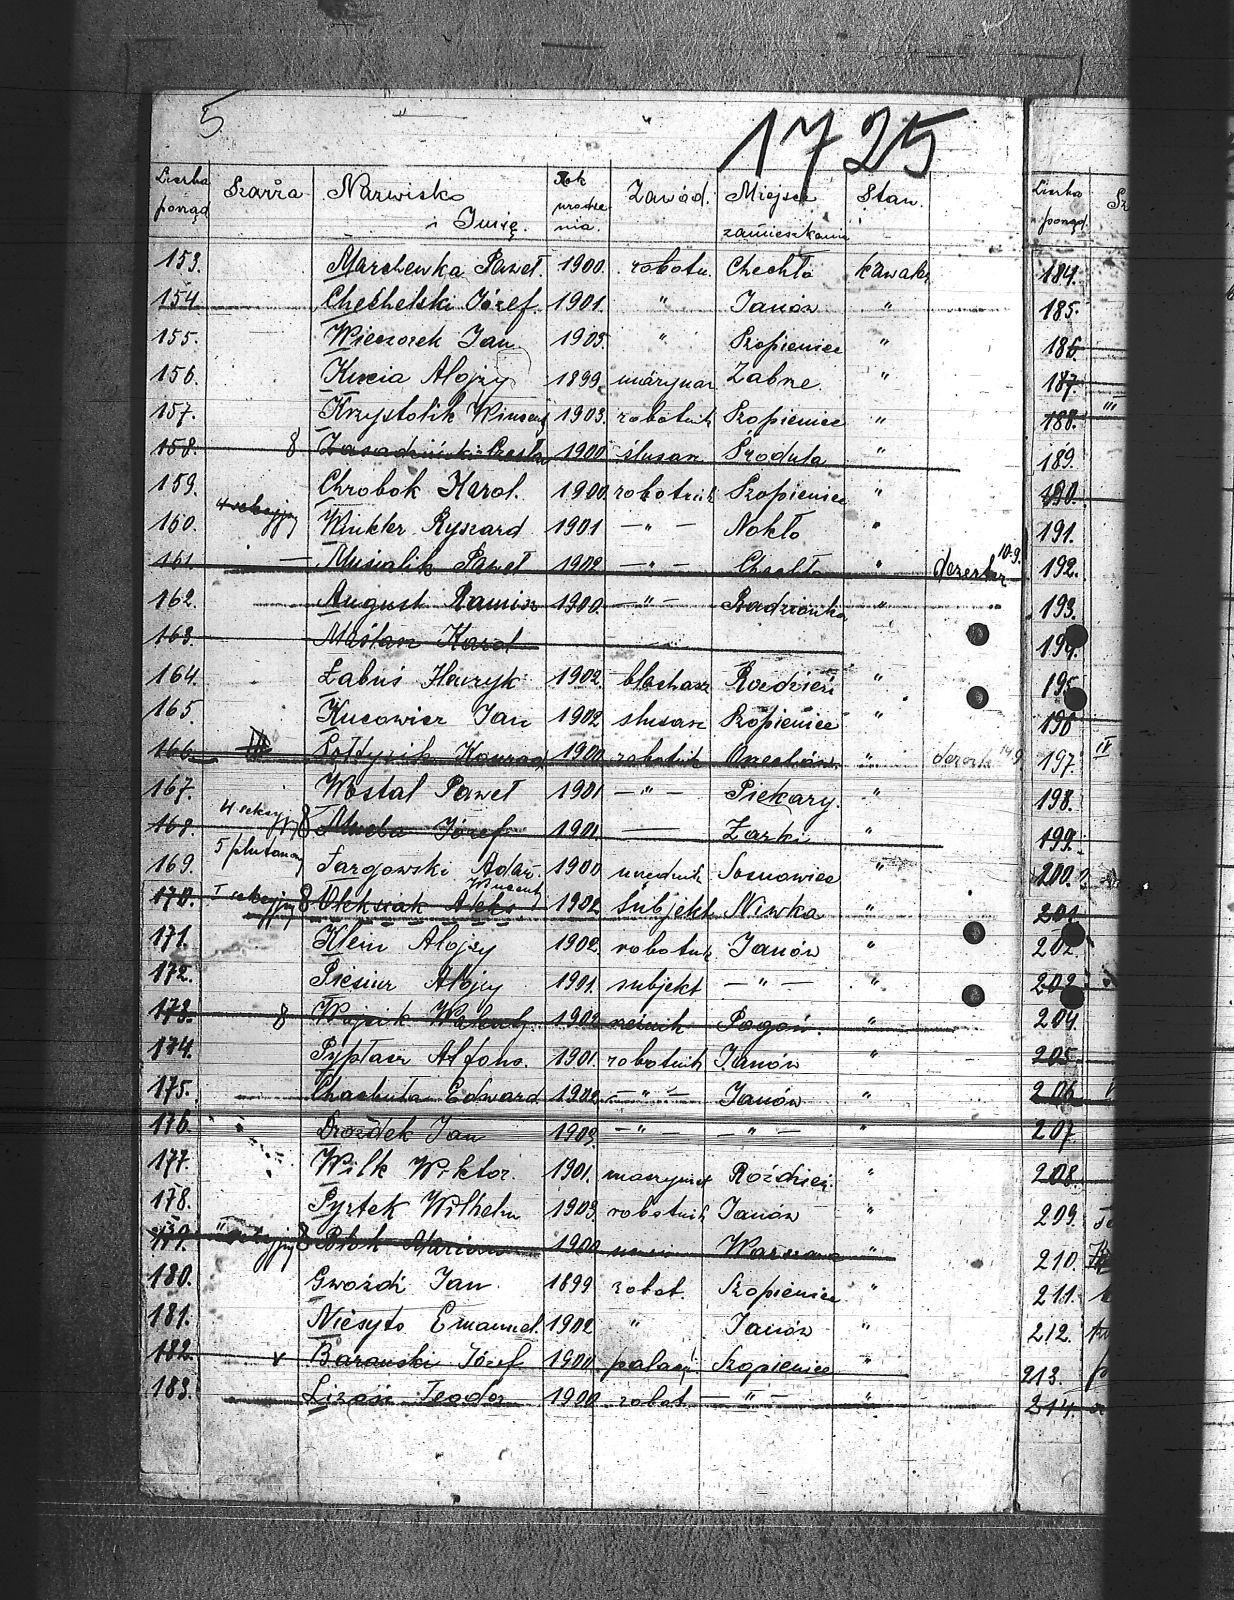 5
1725
Liczba porząd. Szarża Nazwisko i Imię. Rok urodzenia. Zawód. Miejsce zamieszkania Stan. Liczba porząd. Sz
153. Marchewka Paweł 1900. robotn. Chechło kawaler 184.
154. Chechelski Józef. 1901. " Janów " 185.
155. Wieczorek Jan. 1905. " Szopienice " 186.
156. Kucia Alojzy 1899. marynar Zabrze. " 187.
157. Krzystolik Wincenty 1903. robotnik Szopienice " 188. III
158. 8 1900 ślusarz Środula " 189.
159. Chrobok Karol. 1900. robotnik Szopienice " 190.
160. 4 sekcyjny Winkler Ryszard 1901 — " — Nokło " 191.
161. Musialik Paweł 1902 — " — Chechło " dezerter 10.9. 192.
162. August Ramisz 1900. — " — Radzionka " " 193.
163. Maślarz Karol 194.
164. Labuś Henryk 1902. blacharz Rozdzień " 195
165. Kucowicz Jan 1902 slusarz Szopienice " 196
166. Sołtysik Konrad 1900 robotnik " 197. IV
167. Wostal Paweł 1901 — " — Piekary. " 198.
168. 4 sekcyjny 8 Józef 1901. — Żarki " 199.
169. 5 plutonowy Targowski Adam. 1900 urzędnik Sosnowiec " 200.
170. I sekcyjny 8 Aleks Wincenty 1902 subjekt Niwka " 201
171. Klein Alojzy 1902. robotnik Janów " 202.
172. Alojzy 1901. subjekt — " — " 203.
173. 8 Wójcik Walenty. 1902 Pogoń. " 204.
174. Pypłacz Alfons. 1901. robotnik Janów " 205.
175. Chachuła Edward 1902 — " — Janów " 206
176 Drozdek Jan 1903. — " — — " — " 207
177. Wilk Wiktor. 1901. maszynist Roździeń. " 208.
178. Pyrtek Wilhelm 1903. robotnik Janów " 209.
179. sekcyjny 8 Marian 1900 uczeń Warszawa " 210.
180. Gwoźdź Jan. 1899 robot. Szopienice " 211.
181. Niesyto Emanuel. 1902 " Janów " 212.
182. v Barański Józef 1900. palacz. Szopienice " 213.
183. Teodor 1900. robot. — " — " 214.